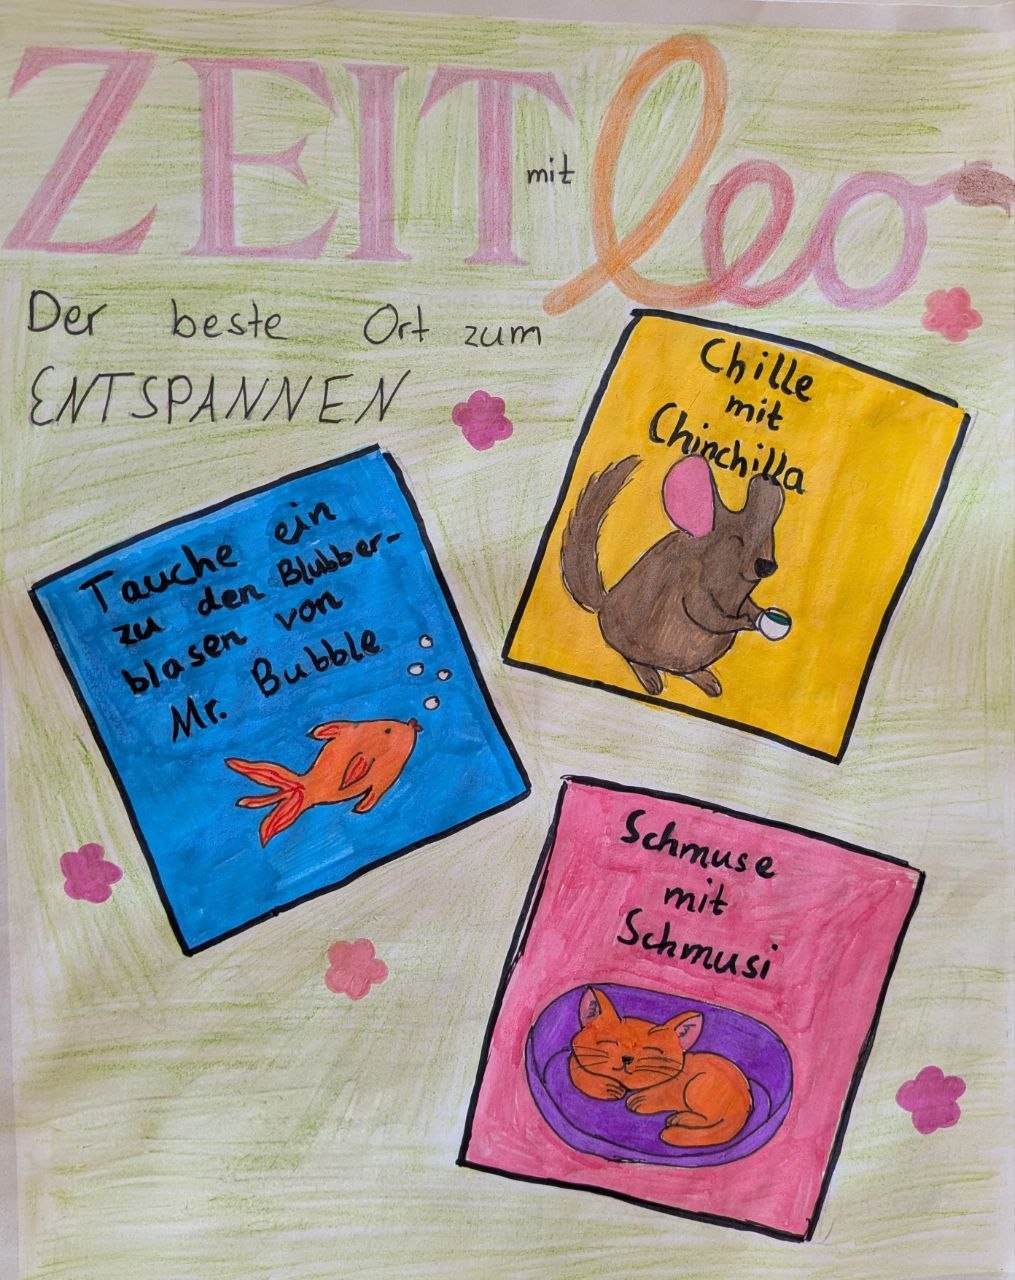 ZEIT mit leo
Der beste Ort zum
ENTSPANNEN
Chille
mit
Chinchilla
Tauche ein
zu den Blubber-
blasen von
Mr. Bubble
Schmuse
mit
Schmusi